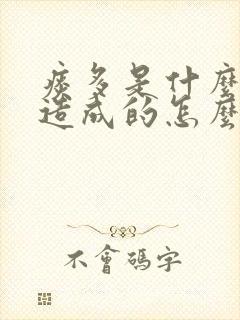 痰多是什麼
造成的怎麼
不會碼字